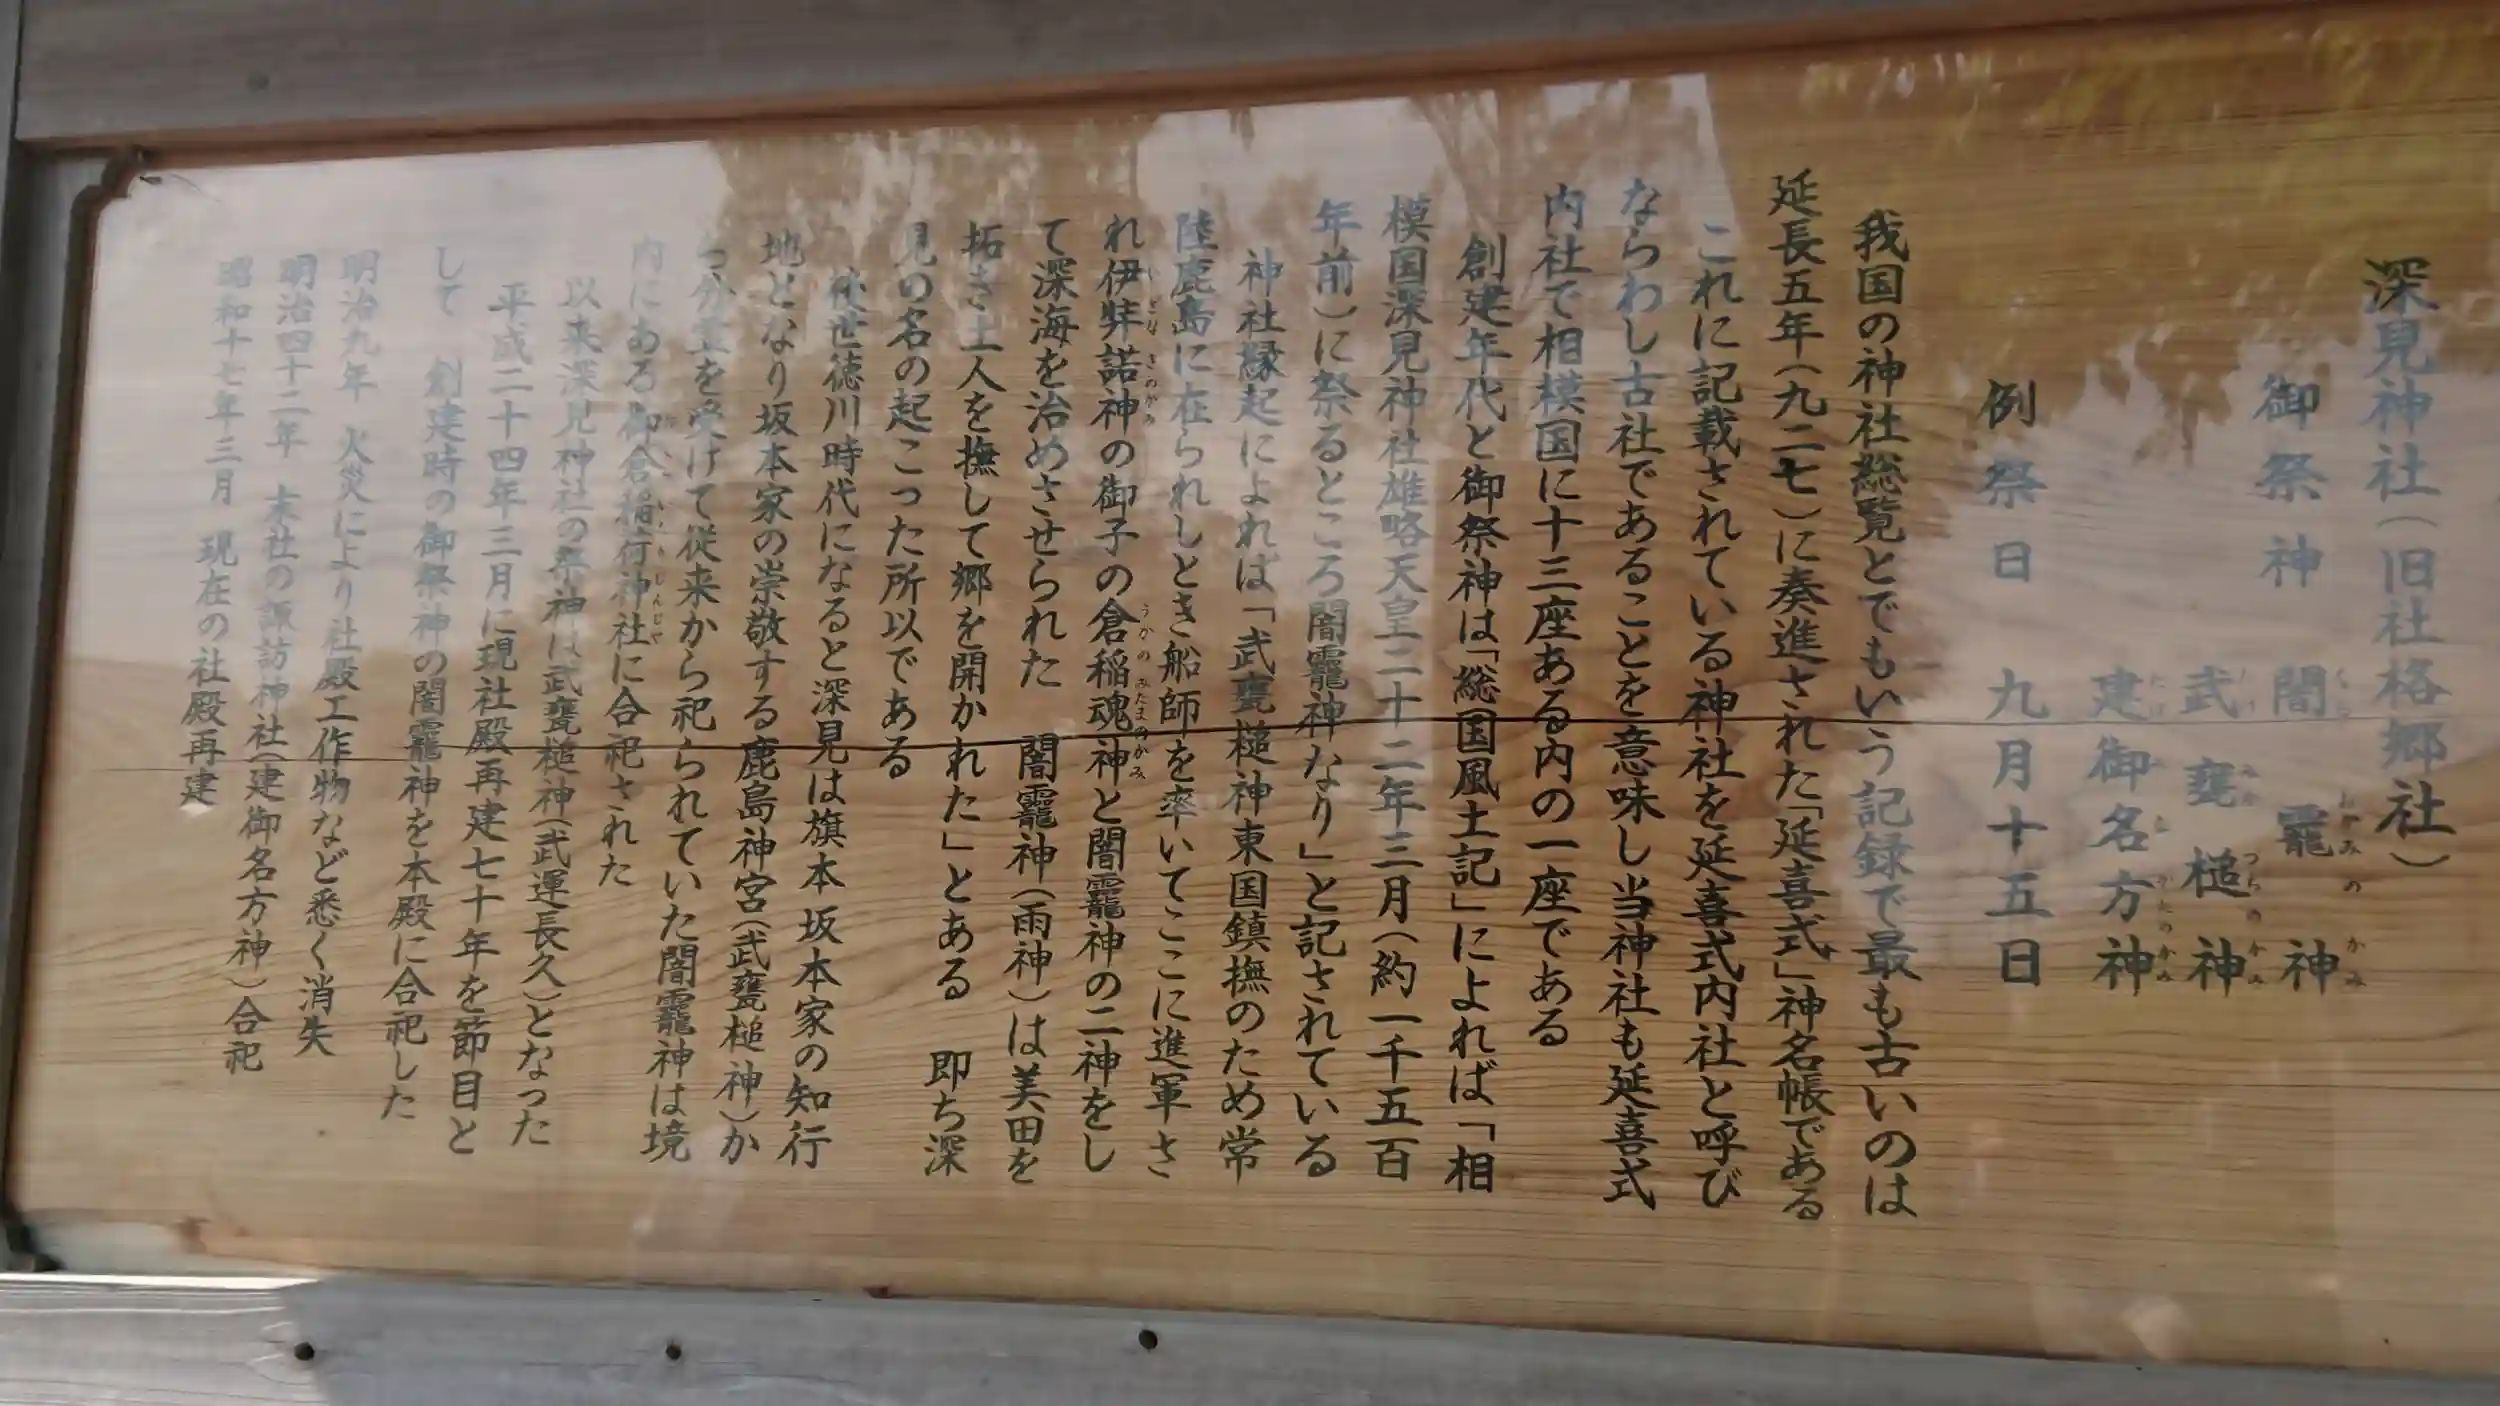 深見神社(旧社格郷社)
御祭神 闇龗神
武甕槌神
建御名方神
例祭日 九月十五日
我国の神社総覧とでもいう記録で最も古いのは
延長五年(九二七)に奏進された「延喜式」神名帳である
これに記載されている神社を延喜式内社と呼び
ならわし古社であることを意味し当神社も延喜式
内社で相模国に十三座ある内の一座である
創建年代と御祭神は「総国風土記」によれば「相
模国深見神社雄略天皇二十二年三月(約一千五百
年前)に祭るところ闇龗神なり」と記されている
神社縁起によれば「武甕槌神東国鎮撫のため常
陸鹿島に在られしとき船師を率いてここに進軍さ
れ伊弉諾神の御子の倉稲魂神と闇龗神の二神をし
て深海を治めさせられた 闇龗神(雨神)は美田を
拓き土人を撫して郷を開かれた」とある 即ち深
見の名の起こった所以である
後世徳川時代になると深見は旗本 坂本家の知行
地となり坂本家の崇敬する鹿島神宮(武甕槌神)か
ら分霊を受けて従来から祀られていた闇龗神は境
内にある御倉稲荷神社に合祀された
以来深見神社の祭神は武甕槌神(武運長久)となった
平成二十四年三月に現社殿再建七十年を節目と
して 創建時の御祭神の闇龗神を本殿に合祀した
明治九年 火災により社殿工作物など悉く消失
明治四十二年 末社の諏訪神社(建御名方神)合祀
昭和十七年三月 現在の社殿再建